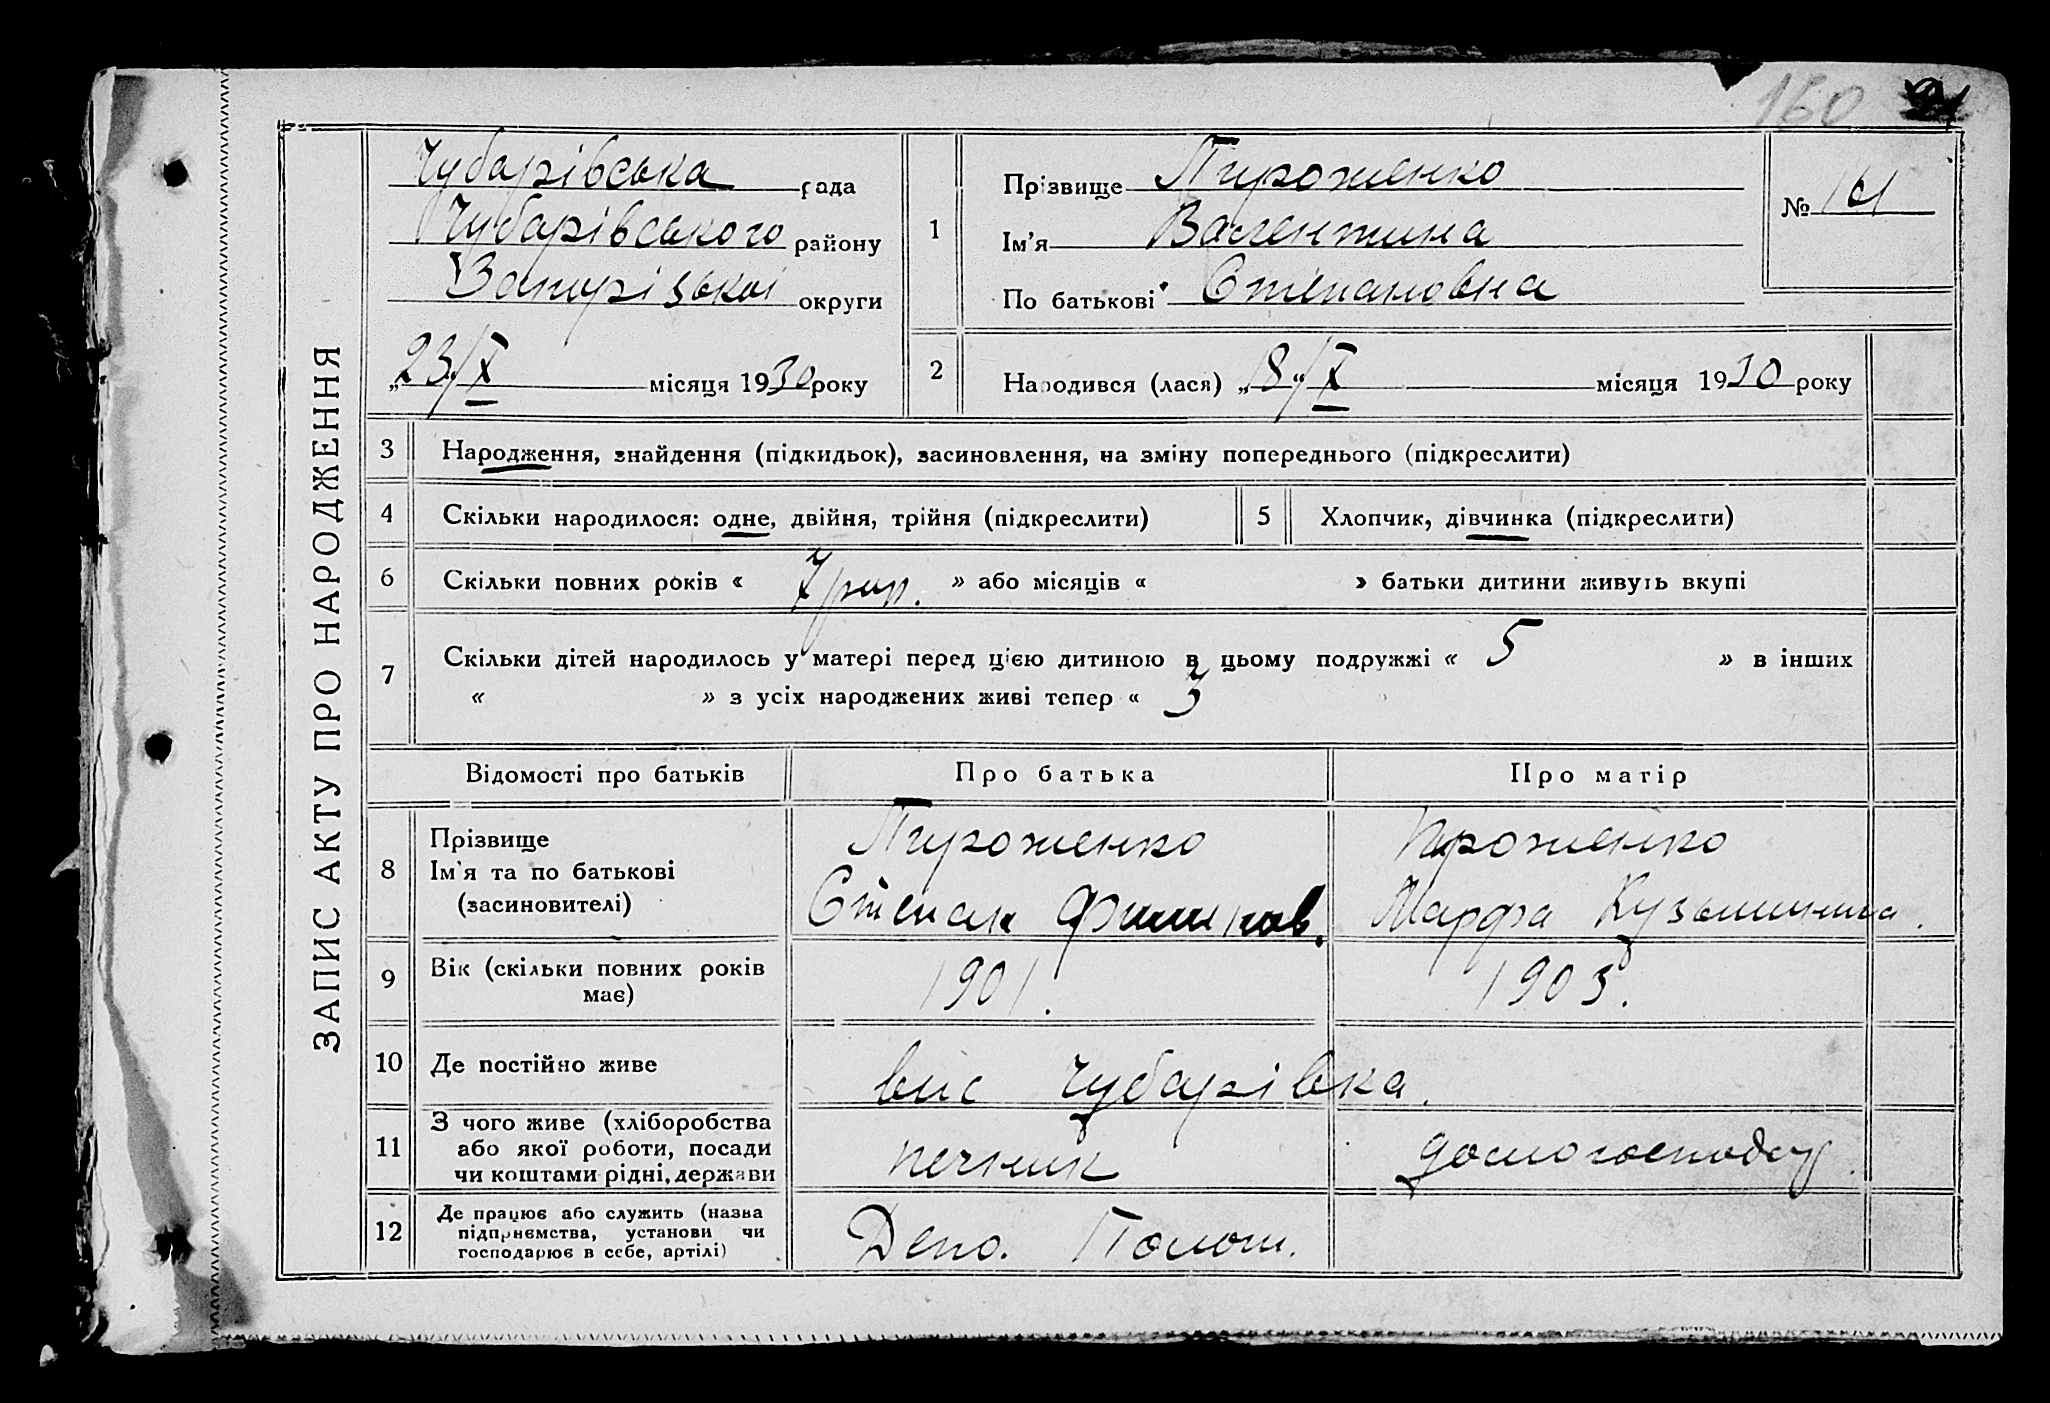 160
ЗАПИС АКТУ ПРО НАРОДЖЕННЯ
Чубарівська рада
Чубарівського району
Запорізької округи
„23/X місяця 1930 року
1
Прізвище Пироженко
Ім'я Валентина
По батькові Степановна
№ 161
2
Народився (лася) „8"/X місяця 1930 року
3 Народження, знайдення (підкидьок), засиновлення, на зміну попереднього (підкреслити)
4 Скільки народилося: одне, двійня, трійня (підкреслити)
5 Хлопчик, дівчинка (підкреслити)
6 Скільки повних років « 7 рок. » або місяців « » батьки дитини живуть вкупі
7 Скільки дітей народилось у матері перед цією дитиною в цьому подружжі « 5 » в інших
« » з усіх народжених живі тепер « 3
Відомості про батьків Про батька Про матір
8 Прізвище
Ім'я та по батькові
(засиновителі)
Пироженко
Степан
Пироженко
Марфа
9 Вік (скільки повних років
має)
1901.
1903.
10 Де постійно живе
вис Чубарівка.
11 З чого живе (хліборобства
або якої роботи, посади
чи коштами рідні, держави
печник
домогосподар.
12 Де працює або служить (назва
підприємства, установи чи
господарює в себе, артілі)
Депо. Пологи.